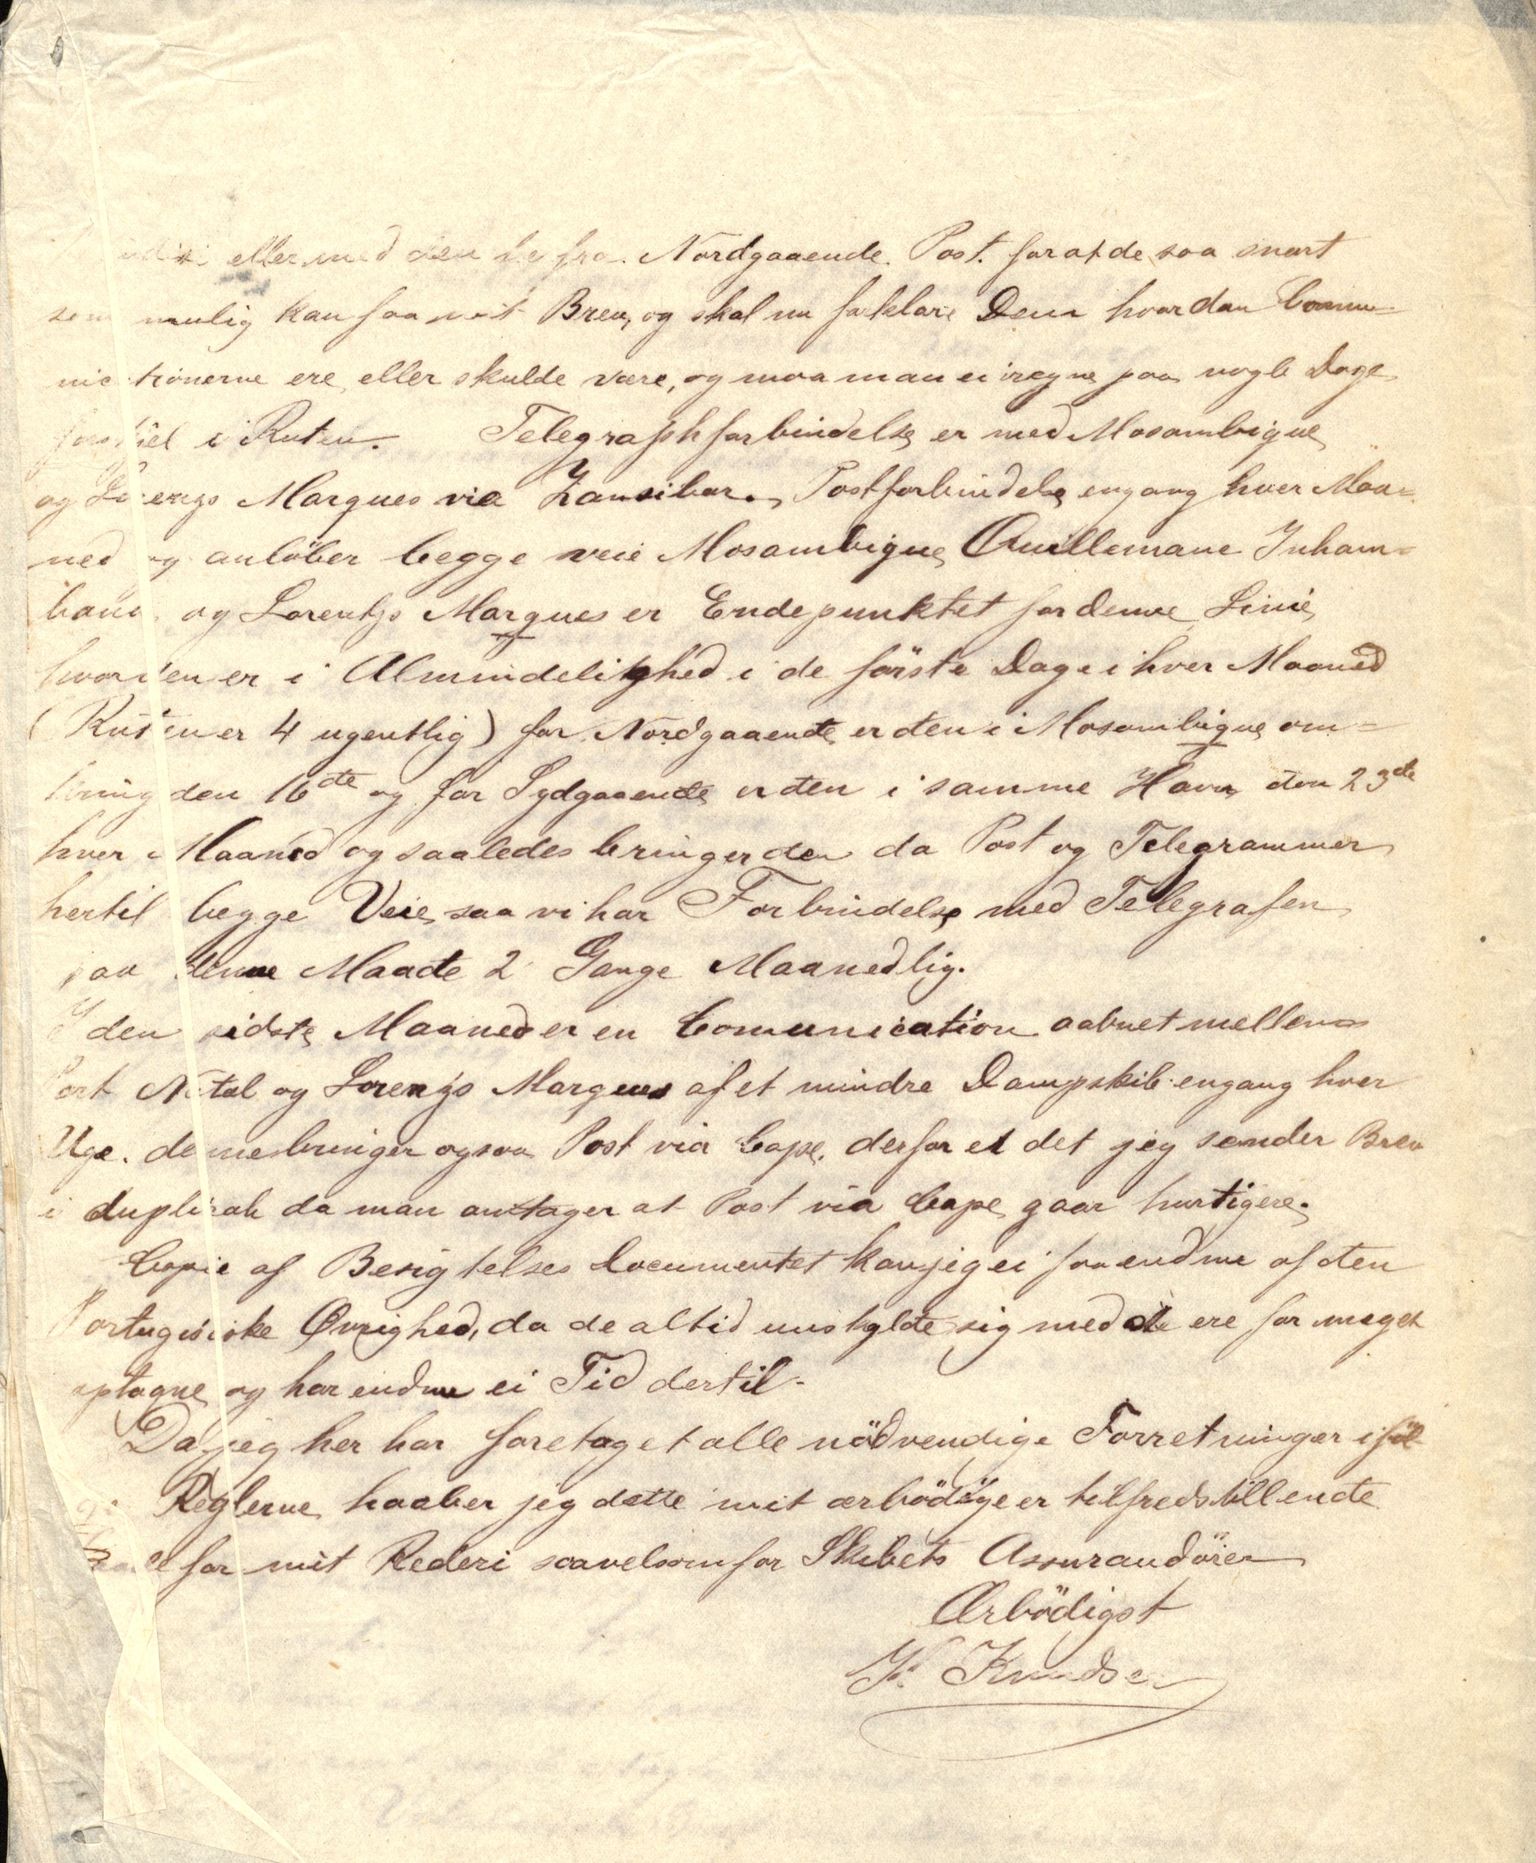 eller med den herfra Nordgaaende Post. for at de saa snart
som mulig kan faa mit Brev, og skal nu forklare Dem hvordan Commu-
nicationerne ere eller skulde være, og maa man ei regne paa nogle Dage
forskiel i Ruten. Telegraphforbindelse er med Mosambique
og Lorenzo Marques via Zansibar. Postforbindelse engang hver Maa-
ned og anløber begge veie Mosambique Quillemane Inham-
bane og Lorentzo Marques er Endepunktet for denne Linie,
hvor den er i Almindelighed i de første Dage i hver Maaned
(Ruten er 4 ugentlig) for Nordgaaende er den i Mosambique om-
kring den 16de og for Sydgaaende er den i samme Havn den 23de
hver Maaned og saaledes bringer den da Post og Telegrammer
hertil begge Veie saa vi har Forbindelse med Telegrafen
paa denne Maade 2 Gange Maanedlig.
I den sidste Maaned er en Comunication aabnet mellem
Port Natal og Lorenzo Marques af et mindre Dampskib engang hver
Uge. denne bringer ogsaa Post via Cape. derfor er det jeg sender Brev
i duplicat da man antager at Post via Cape gaar hurtigere.
Copie af Besigtelses Documentet kan jeg ei faa endnu af den
Portugisiske Øvrighed, da de altid unskylde sig med de ere for meget
optagne og har endnu ei Tid dertil.
Da jeg her har foretaget alle nödvendige Forretninger iföl-
ge Reglerne haaber jeg dette mit ærbödige er tilfredstillende
for mit Rederi saavelsom for Skibets Assurandörer
Ærbödigst
Knudsen